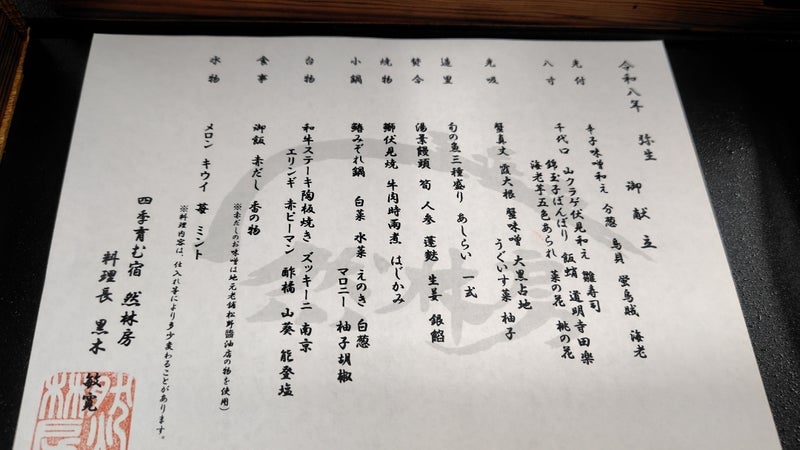 令和八年 弥生 御献立
先付 辛子味噌和え 分葱 鳥貝 蛍烏賊 海老
八寸 千代口 山クラゲ伏見和え 雛寿司
錦玉子ぼんぼり 飯蛸 道明寺田楽
海老芋五色あられ 菜の花 桃の花
先吸 蟹真丈 霞大根 蟹味噌 大黒占地
うぐいす菜 柚子
造里 旬の魚三種盛り あしらい 一式
焚合 湯葉饅頭 筍 人参 蓬麩 生姜 銀餡
焼物 鰤伏見焼 牛肉時雨煮 はじかみ
小鍋 鰆みぞれ鍋 白菜 水菜 えのき 白葱
マロニー 柚子胡椒
台物 和牛ステーキ陶板焼き ズッキーニ 南京
エリンギ 赤ピーマン 酢橘 山葵 能登塩
食事 御飯 赤だし 香の物
※赤だしのお味噌は地元老舗松野醬油店の物を使用)
水物 メロン キウイ 苺 ミント
※料理内容は、仕入れ等により多少変わることがあります。
四季育む宿 然林房
料理長 黒木 敏寛